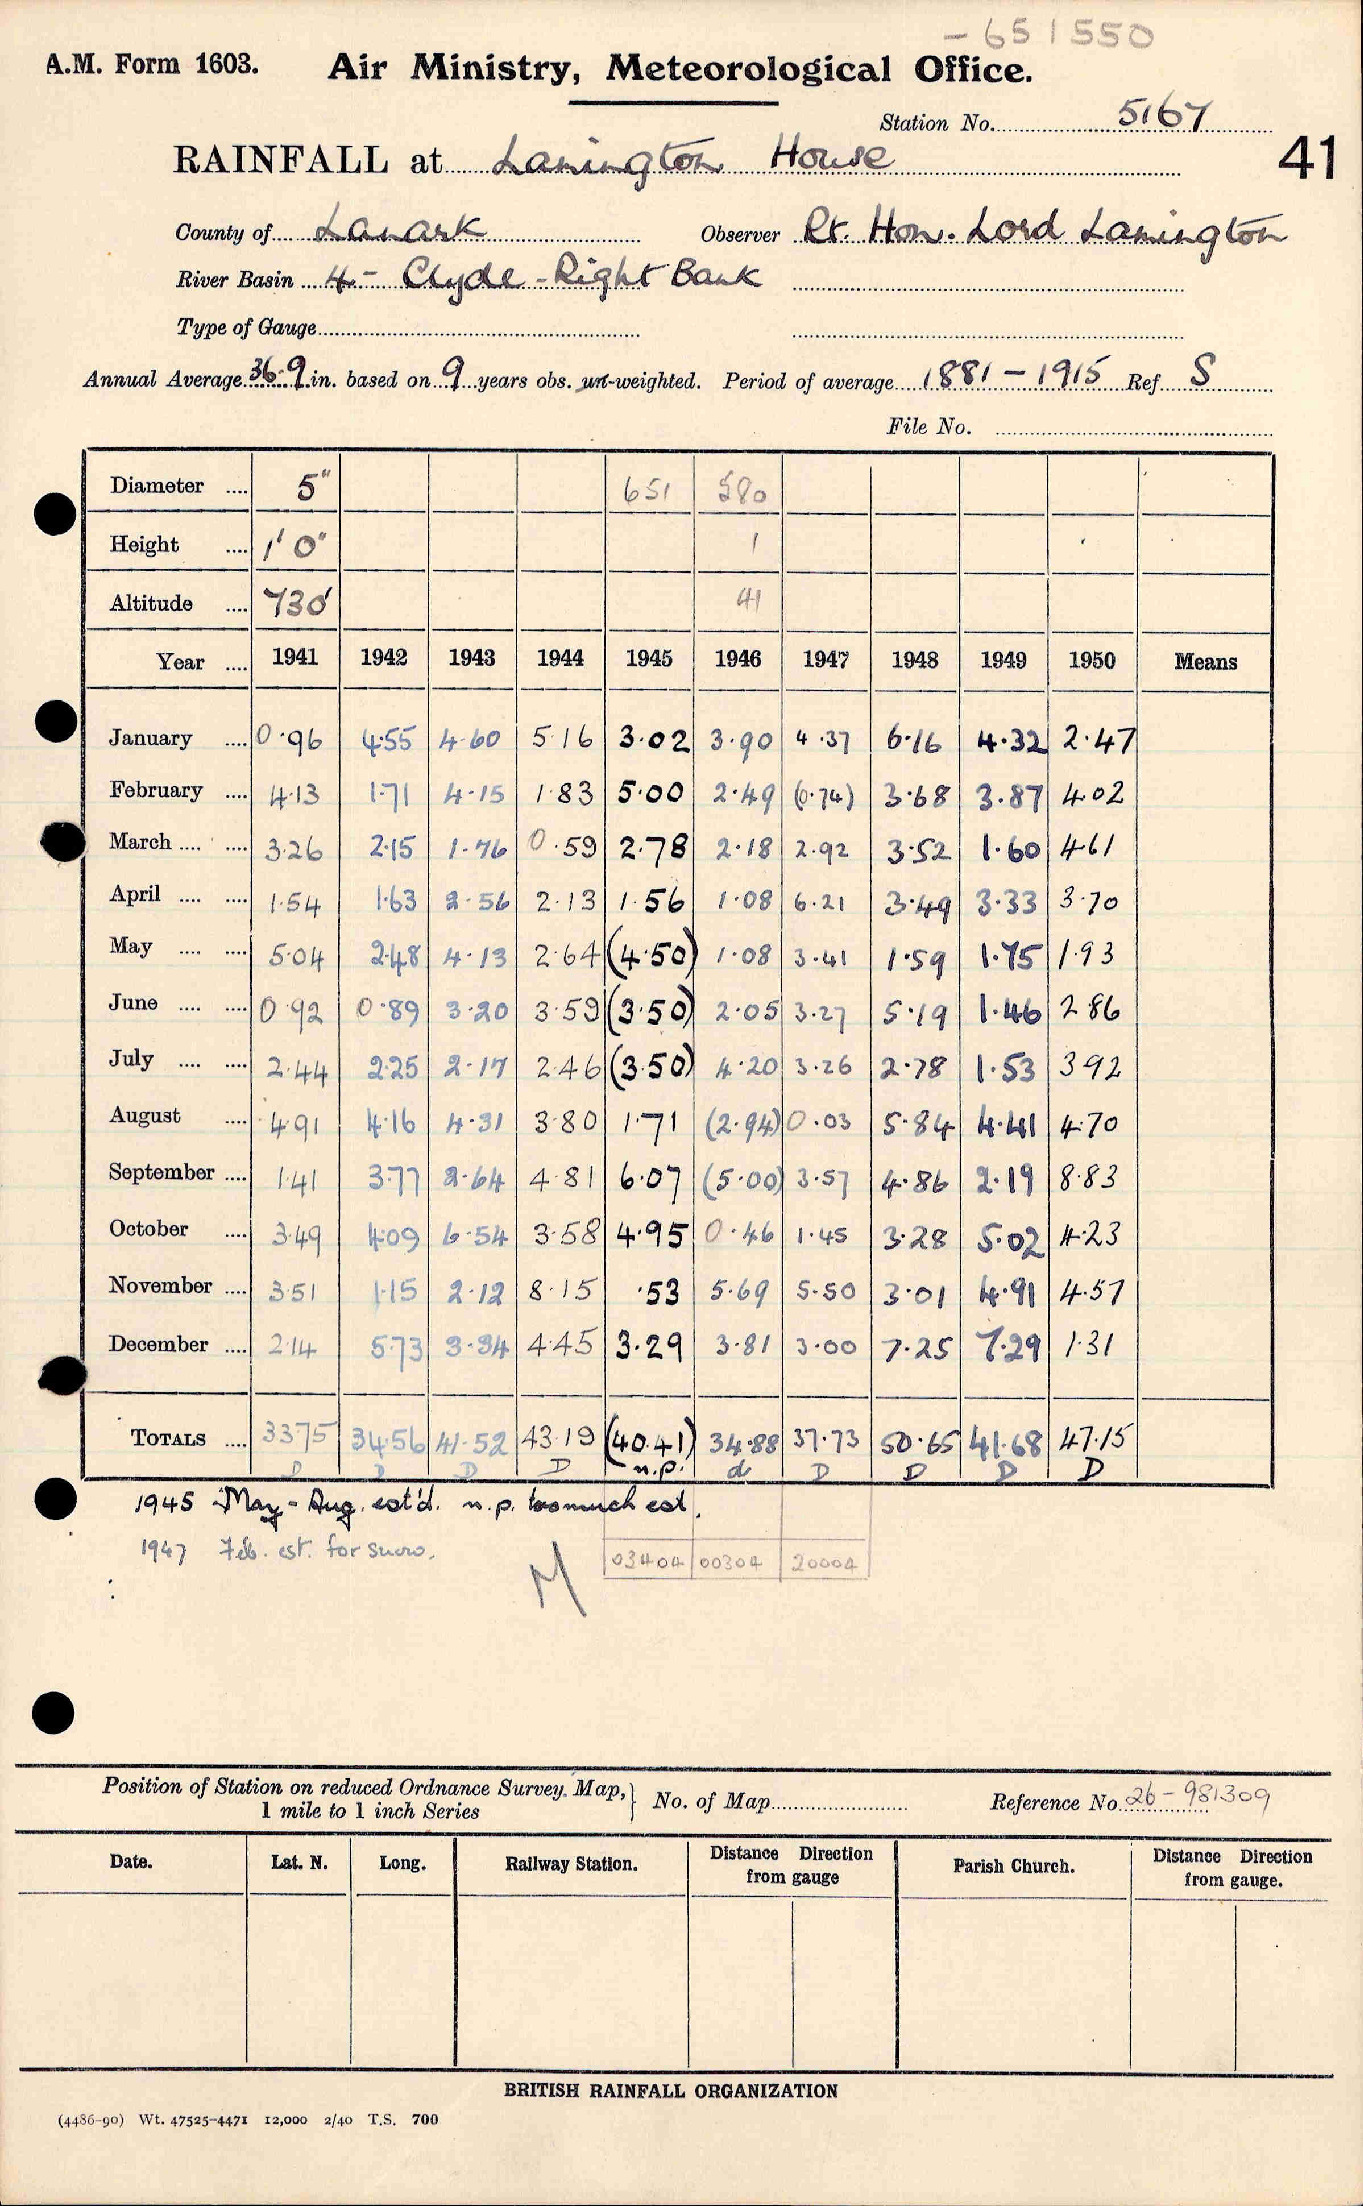 - 651550
A.M. Form 1603. Air Ministry, Meteorological Office.
Station No. 5167
RAINFALL at Lamington House
41
County of Lanark Observer Rt. Hon. Lord Lamington
River Basin 4 - Clyde - Right Bank
Type of Gauge
Annual Average 36.9 in. based on 9 years obs. un-weighted. Period of average 1881 - 1915 Ref S
File No.
Diameter .... 5" 651 580
Height .... 1' 0" 1
Altitude .... 730' 41
Year .... 1941 1942 1943 1944 1945 1946 1947 1948 1949 1950 Means
January .... 0.96 4.55 4.60 5.16 3.02 3.90 4.37 6.16 4.32 2.47
February .... 4.13 1.71 4.15 1.83 5.00 2.49 (0.74) 3.68 3.87 4.02
March .... .... 3.26 2.15 1.76 0.59 2.78 2.18 2.92 3.52 1.60 4.61
April .... .... 1.54 1.63 2.56 2.13 1.56 1.08 6.21 3.49 3.33 3.70
May .... .... 5.04 2.48 4.13 2.64 (4.50) 1.08 3.41 1.59 1.75 1.93
June .... .... 0.92 0.89 3.20 3.59 (3.50) 2.05 3.27 5.19 1.46 2.86
July .... .... 2.44 2.25 2.17 2.46 (3.50) 4.20 3.26 2.78 1.53 3.92
August .... 4.91 4.16 4.31 3.80 1.71 (2.94) 0.03 5.84 4.41 4.70
September .... 1.41 3.77 2.64 4.81 6.07 (5.00) 3.57 4.86 2.19 8.83
October .... 3.49 4.09 6.54 3.58 4.95 0.46 1.45 3.28 5.02 4.23
November .... 3.51 1.15 2.12 8.15 .53 5.69 5.50 3.01 4.91 4.57
December .... 2.14 5.73 3.34 4.45 3.29 3.81 3.00 7.25 7.29 1.31
TOTALS .... 33.75 34.56 41.52 43.19 (40.41) 34.88 37.73 50.65 41.68 47.15
D D D D n.p. d D D D D
1945 May - Aug. est'd. n.p. too much est.
1947 Feb. est. for snow.
M 03404 00304 20004
Position of Station on reduced Ordnance Survey Map,
1 mile to 1 inch Series
No. of Map Reference No. 26 - 981309
Date. Lat. N. Long. Railway Station. Distance Direction from gauge Parish Church. Distance Direction from gauge.
BRITISH RAINFALL ORGANIZATION
(4486-90) Wt. 47525-4471 12,000 2/40 T.S. 700